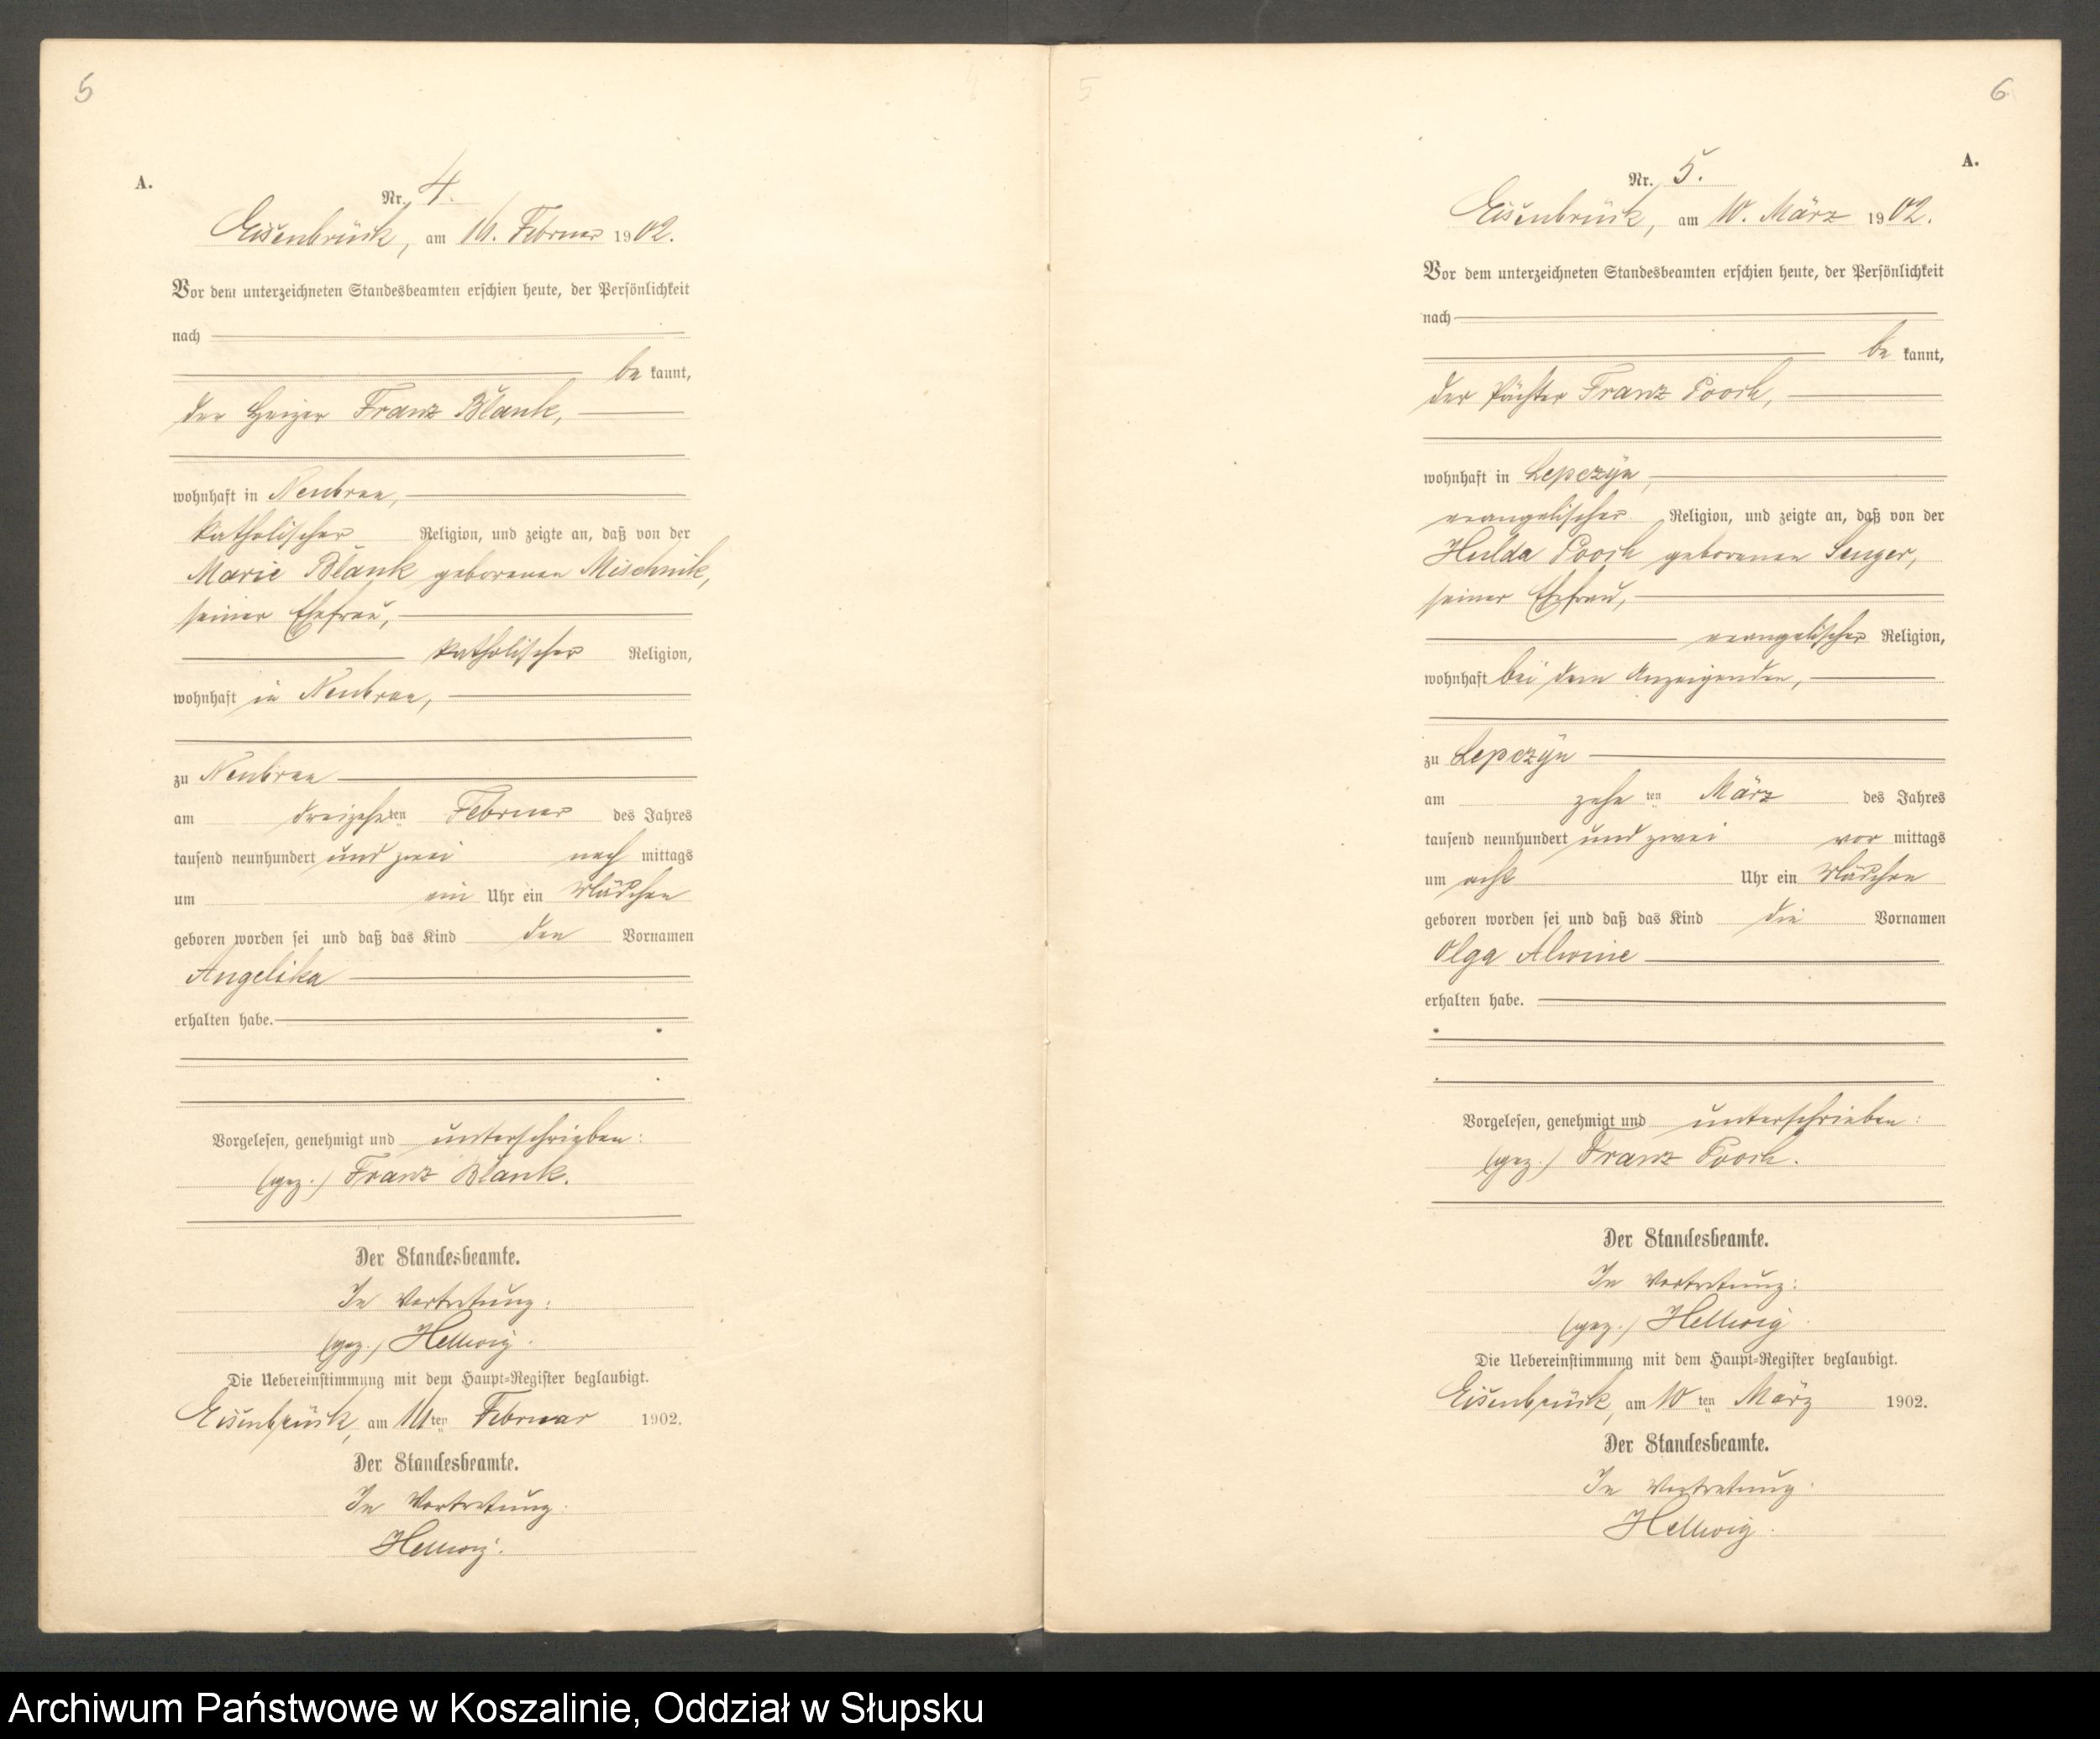 5
A.
Nr. 4.
Eisenbrück, am Februar 1902.
Vor dem unterzeichneten Standesbeamten erschien heute, der Persönlichkeit
nach
be kannt,
der Heizer Franz Blank,
wohnhaft in Neubrau,
katholischer Religion, und zeigte an, daß von der
Marie Blank geborenen Mischnik,
seiner Ehefrau,
katholischer Religion,
wohnhaft in Neubrau,
zu Neubrau
am dreizehnten Februar des Jahres
tausend neunhundert und zwei nach mittags
um ein Uhr ein Mädchen
geboren worden sei und daß das Kind den Vornamen
Angelika
erhalten habe.
Vorgelesen, genehmigt und unterschrieben:
(gez.) Franz Blank.
Der Standesbeamte.
In Vertretung:
(gez.) Hellwig.
Die Uebereinstimmung mit dem Haupt-Register beglaubigt.
Eisenbrück, am ten Februar 1902.
Der Standesbeamte.
In Vertretung:
Hellwig.
6
A.
Nr. 5.
Eisenbrück, am 10. März 1902.
Vor dem unterzeichneten Standesbeamten erschien heute, der Persönlichkeit
nach
be kannt,
der Pächter Franz Pooch,
wohnhaft in Lepczyn,
evangelischer Religion, und zeigte an, daß von der
Hulda Pooch geborenen Senger,
seiner Ehefrau,
evangelischer Religion,
wohnhaft bei dem Anzeigenden,
zu Lepczyn
am zehnten März des Jahres
tausend neunhundert und zwei vor mittags
um acht Uhr ein Mädchen
geboren worden sei und daß das Kind die Vornamen
Olga Alwine
erhalten habe.
Vorgelesen, genehmigt und unterschrieben:
(gez.) Franz Pooch.
Der Standesbeamte.
In Vertretung:
(gez.) Hellwig.
Die Uebereinstimmung mit dem Haupt-Register beglaubigt.
Eisenbrück, am 10 ten März 1902.
Der Standesbeamte.
In Vertretung:
Hellwig.
Archiwum Państwowe w Koszalinie, Oddział w Słupsku